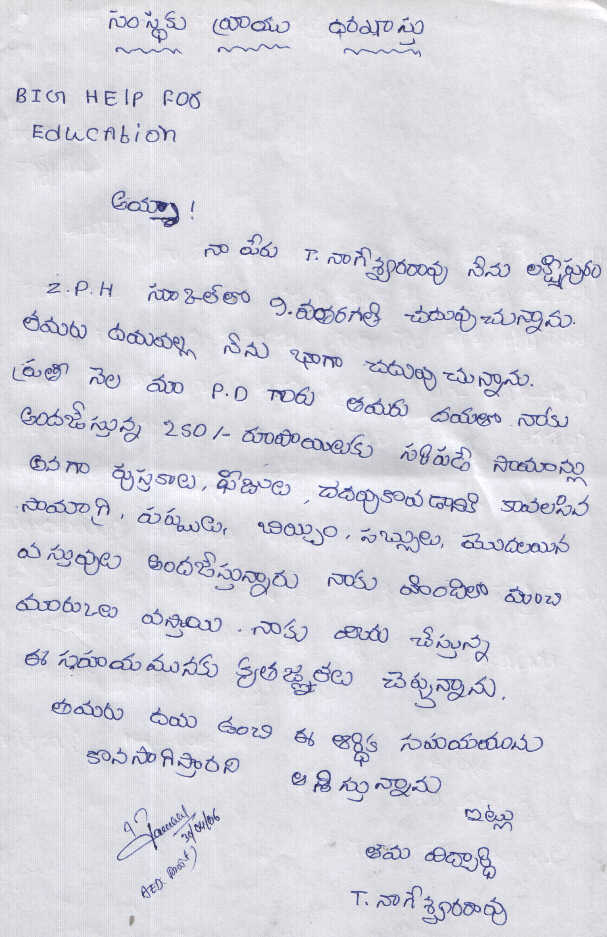 సంస్థకు వ్రాయు ధరఖాస్తు
BIG HELP FOR
EducAtion
అయ్యా!
నా పేరు T. నాగేశ్వరరావు నేను లక్ష్మిపురం
Z.P.H స్కూల్‌లో 9.వతరగతి చదువుచున్నాను.
తమరు దయవల్ల నేను భాగా చదువుచున్నాను.
ప్రతి నెల మా P.D గారు తమరు దయతో నాకు
అందజేస్తున్న 250/- రూపాయిలకు సరిపడే సామాన్లు
అనగా పుస్తకాలు, చదవుకోవడానికి కావలసిన
సామాగ్రి, పప్పులు, బియ్యం, సబ్బులు, మొదలయిన
వస్తువులు అందజేస్తున్నారు నాకు హిందిలో మంచి
మార్కులు వస్తాయి. నాకు మీరు చేస్తున్న
ఈ సహాయమునకు కృతజ్ఞతలు చెప్పున్నాను.
తమరు దయ ఉంచి ఈ ఆర్ధిక సహాయయంను
కొనసాగిస్తారని ఆశిస్తున్నాను
ఇట్లు
తమ విద్యార్ధి
T. నాగేశ్వరరావు